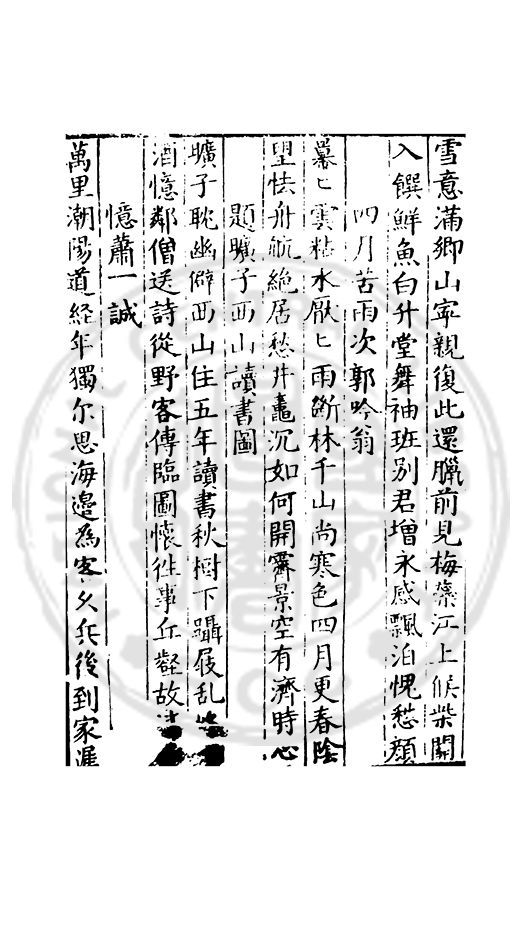 雪意滿鄉山寧親復此還臘前見梅蘂江上候柴關
入饌鮮魚白升堂舞袖班別君增永感飄泊愧愁顏
四月苦雨次郭吟翁
羃〻雲粘水厭〻雨斷林千山尚寒色四月更春陰
望怯舟航絶居愁井竈沉如何開霽景空有濟時心
題曠子西山讀書圖
曠子耽幽僻西山住五年讀書秋樹下躡屐亂
酒憶鄰僧送詩從野客傳臨圖懷徃事丘壑故
憶蕭一誠
萬里潮陽道經年獨尔思海邊為客久兵後到家遲